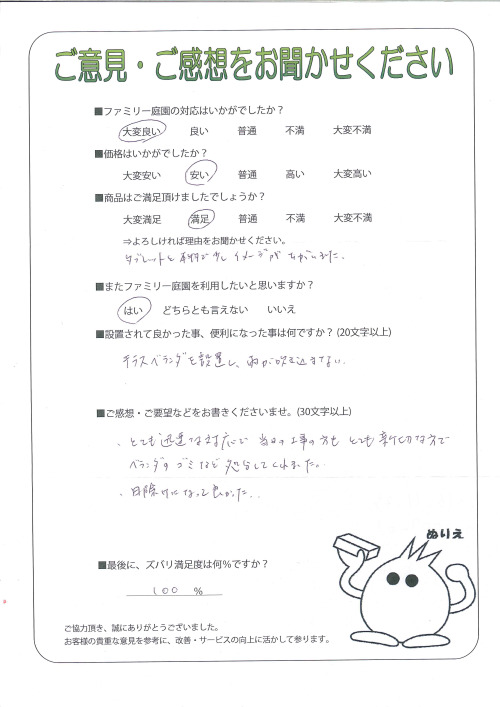 ご意見・ご感想をお聞かせください
■ファミリー庭園の対応はいかがでしたか？
大変良い 良い 普通 不満 大変不満
■価格はいかがでしたか？
大変安い 安い 普通 高い 大変高い
■商品はご満足頂けましたでしょうか？
大変満足 満足 普通 不満 大変不満
⇒よろしければ理由をお聞かせください。
タブレットと 少し イメージが ちがいました。
■またファミリー庭園を利用したいと思いますか？
はい どちらとも言えない いいえ
■設置されて良かった事、便利になった事は何ですか？(20文字以上)
テラスベランダを設置し、雨が吹き込まない.
■ご感想・ご要望などをお書きくださいませ。(30文字以上)
、とても迅速な対応で 当日の工事の方も とても親切な方で
ベランダのゴミなど 処分してくれました。
、日除けになって良かった.
ぬりえ
■最後に、ズバリ満足度は何％ですか？
100 %
ご協力頂き、誠にありがとうございました。
お客様の貴重な意見を参考に、改善・サービスの向上に活かして参ります。